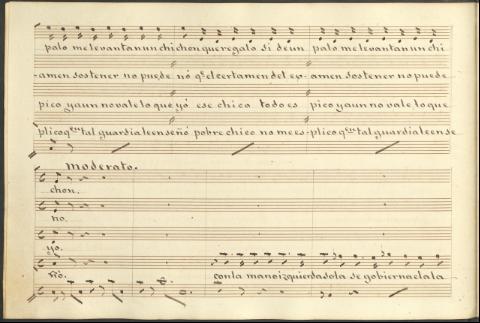 palo me levantan un chi chon que regalo si de un palo me levantan un chi
amen sostener no puede nó q.e el certamen del ex- amen sostener no puede
pico y aun no vale lo que yó ese chico todo es pico y aun no vale lo que
plico q.en tal guardia le enseñó pobre chico no me es- plico q.en tal guardia le ense
Moderato.
chon.
no.
yo.
ñó.
con la mano izquierda sola se gobierna el ala